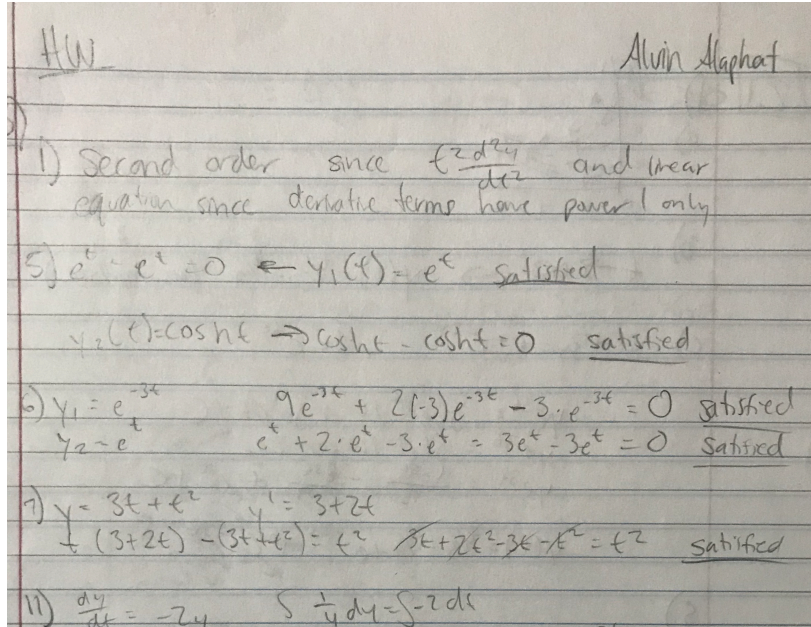 HW Alvin Alaphat
1) Second order since t² d²y/dt² and linear
equation since derivative terms have power 1 only
5) e^t - e^t = 0 ← y₁(t) = e^t satisfied
y₂(t)=cosht → cosht - cosht = 0 satisfied
6) y₁ = e^-3t 9e^-3t + 2(-3)e^-3t - 3·e^-3t = 0 satisfied
y₂ - e^t e^t + 2·e^t - 3·e^t = 3e^t - 3e^t = 0 satisfied
7) y = 3t + t² y' = 3+2t
t (3+2t) - (3t+t²) = t² 3t+2t²-3t-t² = t² satisfied
11) dy/dt = -2y ∫ 1/y dy = ∫-2dt